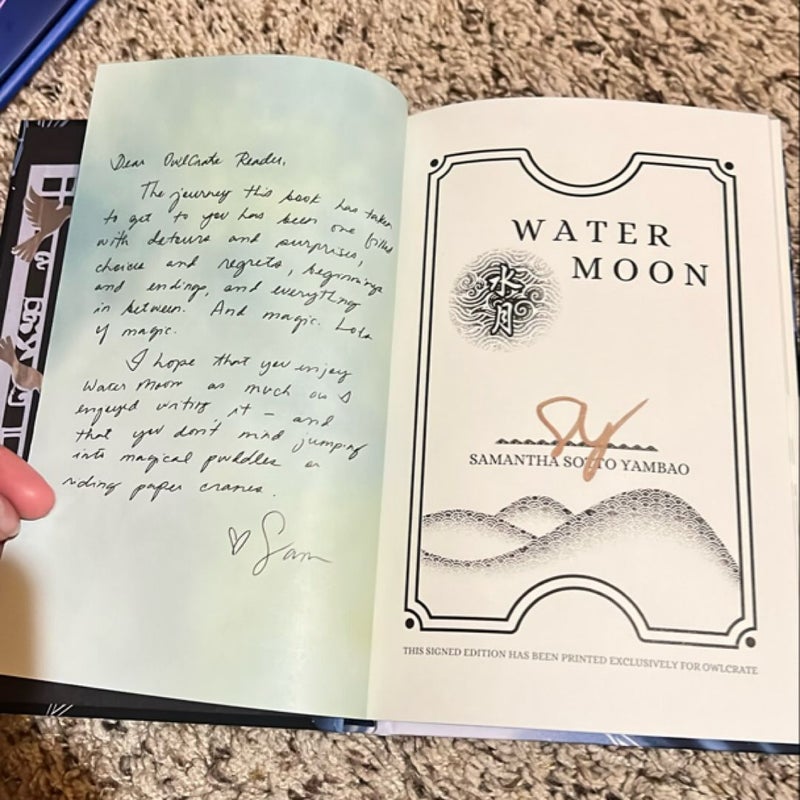 Dear OwlCrate Reader,
The journey this book has taken
to get to you has been one filled
with detours and surprises,
choices and regrets, beginnings
and endings, and everything
in between. And magic. Lots
of magic.
I hope that you enjoy
Water Moon as much as I
enjoyed writing it – and
that you don't mind jumping
into magical puddles or
riding paper cranes.
♡ Sam
WATER
MOON
水月
SY
SAMANTHA SOTTO YAMBAO
THIS SIGNED EDITION HAS BEEN PRINTED EXCLUSIVELY FOR OWLCRATE